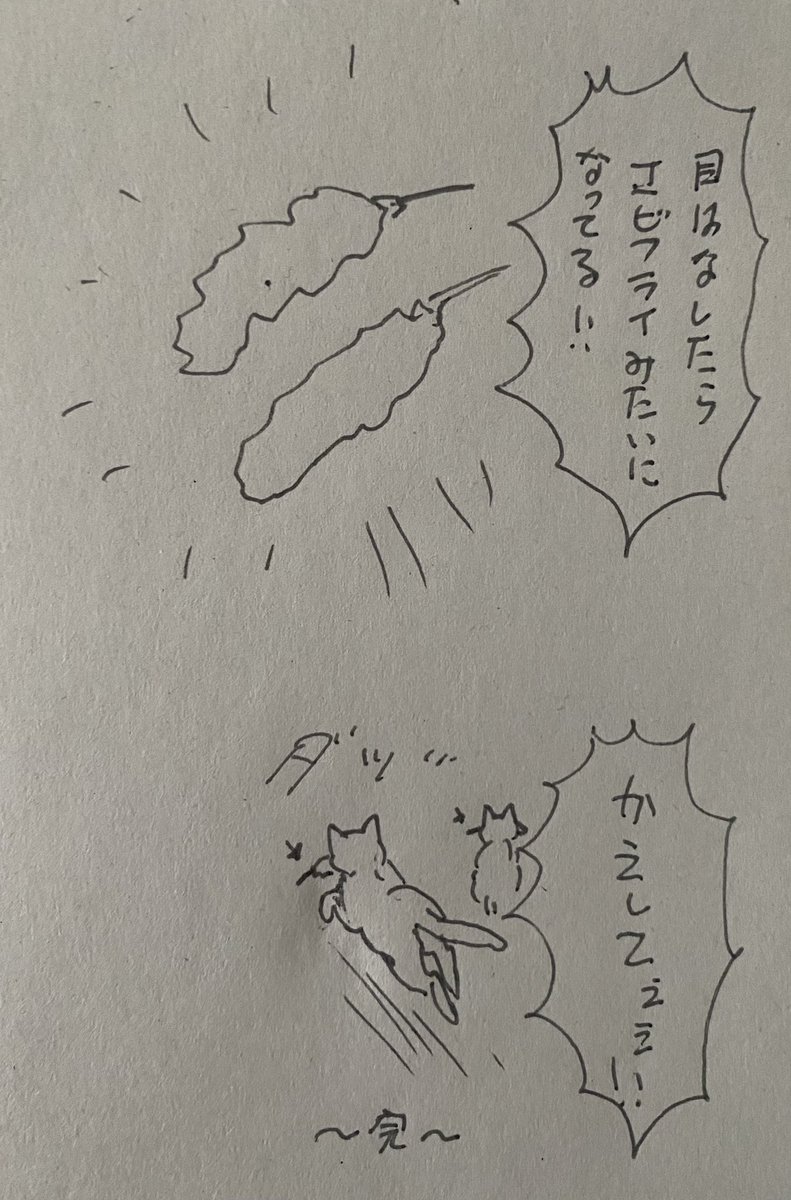 目はなしたら
エビフライみたいに
なってる!!
ダッッ
かえしてぇぇ!!
〜完〜